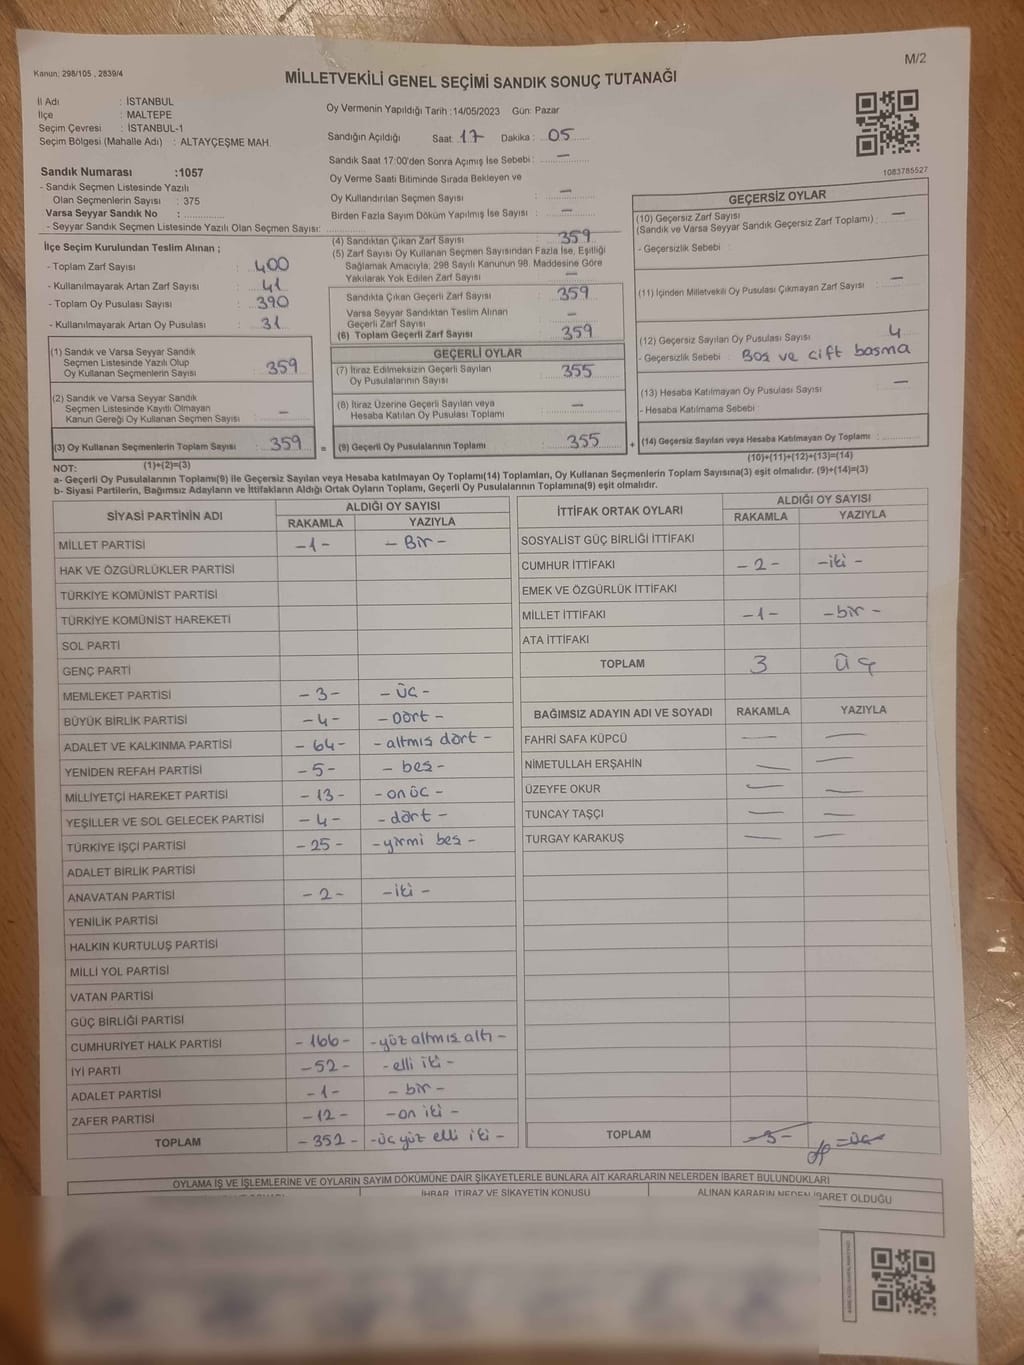 M/2
Kanun: 298/105 , 2839/4
MİLLETVEKİLİ GENEL SEÇİMİ SANDIK SONUÇ TUTANAĞI
İl Adı : İSTANBUL
İlçe : MALTEPE
Seçim Çevresi : İSTANBUL-1
Seçim Bölgesi (Mahalle Adı) : ALTAYÇEŞME MAH.
Sandık Numarası :1057
- Sandık Seçmen Listesinde Yazılı
Olan Seçmenlerin Sayısı : 375
Varsa Seyyar Sandık No :
- Seyyar Sandık Seçmen Listesinde Yazılı Olan Seçmen Sayısı:
Oy Vermenin Yapıldığı Tarih :14/05/2023 Gün: Pazar
Sandığın Açıldığı Saat 17 Dakika : 05
Sandık Saat 17:00'den Sonra Açımış İse Sebebi : —
Oy Verme Saati Bitiminde Sırada Bekleyen ve
Oy Kullandırılan Seçmen Sayısı : —
Birden Fazla Sayım Döküm Yapılmış İse Sayısı : —
1083785527
İlçe Seçim Kurulundan Teslim Alınan ;
- Toplam Zarf Sayısı : 400
- Kullanılmayarak Artan Zarf Sayısı : 41
- Toplam Oy Pusulası Sayısı : 390
- Kullanılmayarak Artan Oy Pusulası : 31
(1) Sandık ve Varsa Seyyar Sandık
Seçmen Listesinde Yazılı Olup
Oy Kullanan Seçmenlerin Sayısı : 359
(2) Sandık ve Varsa Seyyar Sandık
Seçmen Listesinde Kayıtlı Olmayan
Kanun Gereği Oy Kullanan Seçmen Sayısı : —
(3) Oy Kullanan Seçmenlerin Toplam Sayısı : 359 =
(1)+(2)=(3)
(4) Sandıktan Çıkan Zarf Sayısı : 359
(5) Zarf Sayısı Oy Kullanan Seçmen Sayısından Fazla İse, Eşitliği
Sağlamak Amacıyla; 298 Sayılı Kanunun 98. Maddesine Göre
Yakılarak Yok Edilen Zarf Sayısı : —
Sandıkta Çıkan Geçerli Zarf Sayısı : 359
Varsa Seyyar Sandıktan Teslim Alınan
Geçerli Zarf Sayısı : —
(6) Toplam Geçerli Zarf Sayısı : 359
GEÇERLİ OYLAR
(7) İtiraz Edilmeksizin Geçerli Sayılan
Oy Pusulalarının Sayısı : 355
(8) İtiraz Üzerine Geçerli Sayılan veya
Hesaba Katılan Oy Pusulası Toplamı : —
(9) Geçerli Oy Pusulalarının Toplamı : 355 +
GEÇERSİZ OYLAR
(10) Geçersiz Zarf Sayısı
(Sandık ve Varsa Seyyar Sandık Geçersiz Zarf Toplamı) : —
- Geçersizlik Sebebi :
(11) İçinden Milletvekili Oy Pusulası Çıkmayan Zarf Sayısı : —
(12) Geçersiz Sayılan Oy Pusulası Sayısı : 4
- Geçersizlik Sebebi : Boş ve çift basma
(13) Hesaba Katılmayan Oy Pusulası Sayısı : —
- Hesaba Katılmama Sebebi :
(14) Geçersiz Sayılan veya Hesaba Katılmayan Oy Toplamı :
(10)+(11)+(12)+(13)=(14)
NOT:
a- Geçerli Oy Pusulalarının Toplamı(9) ile Geçersiz Sayılan veya Hesaba katılmayan Oy Toplamı(14) Toplamları, Oy Kullanan Seçmenlerin Toplam Sayısına(3) eşit olmalıdır. (9)+(14)=(3)
b- Siyasi Partilerin, Bağımsız Adayların ve İttifakların Aldığı Ortak Oyların Toplamı, Geçerli Oy Pusulalarının Toplamına(9) eşit olmalıdır.
SİYASİ PARTİNİN ADI ALDIĞI OY SAYISI
RAKAMLA YAZIYLA
MİLLET PARTİSİ -1- - Bir -
HAK VE ÖZGÜRLÜKLER PARTİSİ
TÜRKİYE KOMÜNİST PARTİSİ
TÜRKİYE KOMÜNİST HAREKETİ
SOL PARTİ
GENÇ PARTİ
MEMLEKET PARTİSİ -3- - Üç -
BÜYÜK BİRLİK PARTİSİ -4- - Dört -
ADALET VE KALKINMA PARTİSİ - 64- - altmış dört -
YENİDEN REFAH PARTİSİ -5- - beş -
MİLLİYETÇİ HAREKET PARTİSİ - 13 - - onüç -
YEŞİLLER VE SOL GELECEK PARTİSİ -4- - dört -
TÜRKİYE İŞÇİ PARTİSİ - 25 - - yirmi beş -
ADALET BİRLİK PARTİSİ
ANAVATAN PARTİSİ - 2 - -iki -
YENİLİK PARTİSİ
HALKIN KURTULUŞ PARTİSİ
MİLLİ YOL PARTİSİ
VATAN PARTİSİ
GÜÇ BİRLİĞİ PARTİSİ
CUMHURİYET HALK PARTİSİ - 166 - - yüz altmış altı -
İYİ PARTİ -52 - - elli iki -
ADALET PARTİSİ -1- - bir -
ZAFER PARTİSİ -12 - - on iki -
TOPLAM - 352 - -üç yüz elli iki -
İTTİFAK ORTAK OYLARI ALDIĞI OY SAYISI
RAKAMLA YAZIYLA
SOSYALİST GÜÇ BİRLİĞİ İTTİFAKI
CUMHUR İTTİFAKI - 2 - -iki -
EMEK VE ÖZGÜRLÜK İTTİFAKI
MİLLET İTTİFAKI -1- - bir -
ATA İTTİFAKI
TOPLAM 3 Üç
BAĞIMSIZ ADAYIN ADI VE SOYADI RAKAMLA YAZIYLA
FAHRİ SAFA KÜPCÜ — —
NİMETULLAH ERŞAHİN — —
ÜZEYFE OKUR — —
TUNCAY TAŞÇI — —
TURGAY KARAKUŞ — —
TOPLAM -3- =üç
OYLAMA İŞ VE İŞLEMLERİNE VE OYLARIN SAYIM DÖKÜMÜNE DAİR ŞİKAYETLERLE BUNLARA AİT KARARLARIN NELERDEN İBARET BULUNDUKLARI
İHBAR, İTİRAZ VE ŞİKAYETİN KONUSU ALINAN KARARIN NEDEN İBARET OLDUĞU